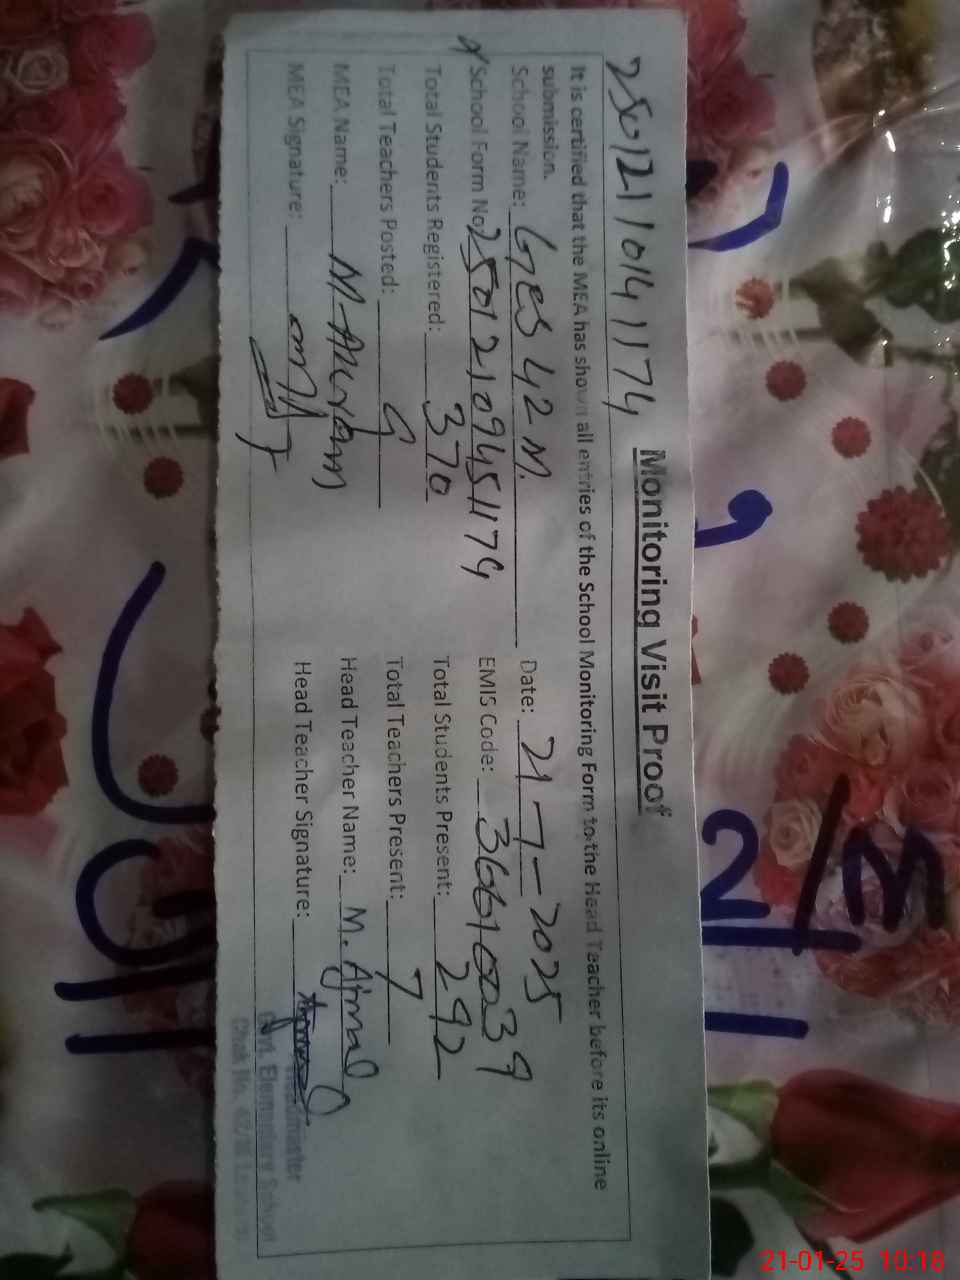 2501211041174
Monitoring Visit Proof
It is certified that the MEA has shown all entries of the School Monitoring Form to the Head Teacher before its online
submission.
School Name: GES 42 M. Date: 21-1-2025
School Form No. 25012109451174 EMIS Code: 36610039
Total Students Registered: 370 Total Students Present: 292
Total Teachers Posted: 9 Total Teachers Present: 7
MEA Name: M-Akram Head Teacher Name: M. Ajmal
MEA Signature: Head Teacher Signature:
Headmaster
Govt. Elementary School
Chak No. 42/M
21-01-25 10:18